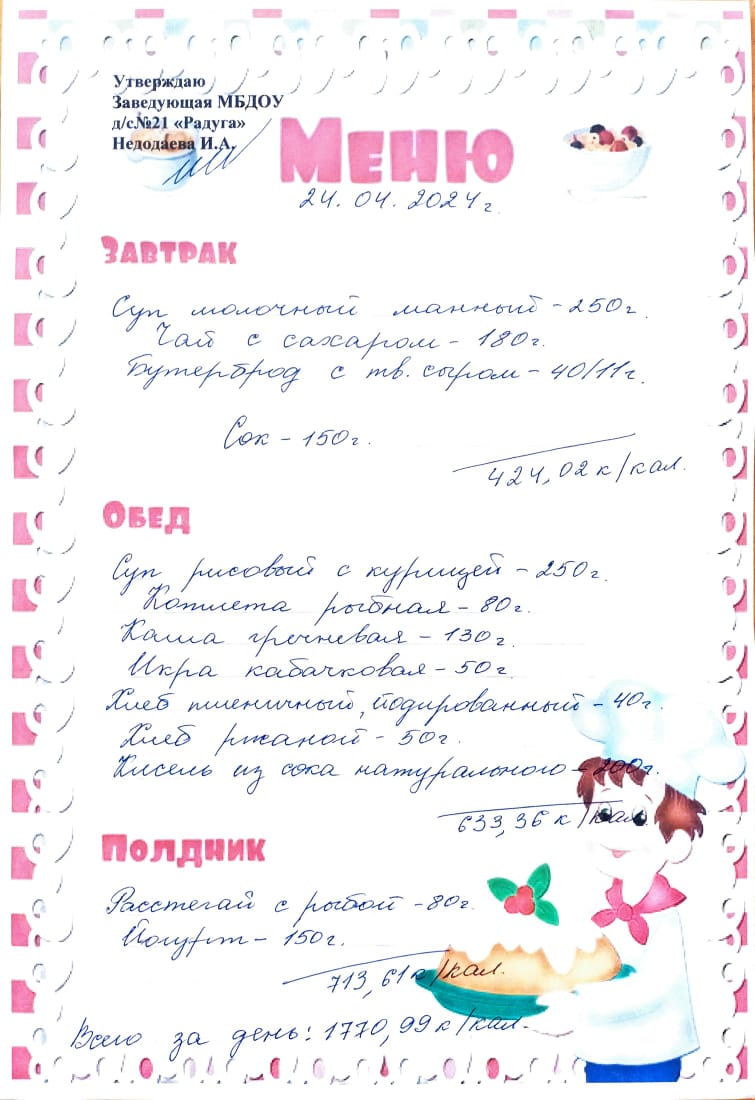 Утверждаю
Заведующая МБДОУ
д/с№21 «Радуга»
Недодаева И.А.
Меню
24. 04. 2024 г.
Завтрак
Суп молочный манный - 250 г.
Чай с сахаром - 180 г.
Бутерброд с тв. сыром - 40/11 г.
Сок - 150 г.
424,02 к/кал.
Обед
Суп рисовый с курицей - 250 г.
Котлета рыбная - 80 г.
Каша гречневая - 130 г.
Икра кабачковая - 50 г.
Хлеб пшеничный, йодированный - 40 г.
Хлеб ржаной - 50 г.
Кисель из сока натурального - 200 г.
633,36 к/кал.
Полдник
Расстегай с рыбой - 80 г.
Йогурт - 150 г.
713,61 к/кал.
Всего за день: 1770,99 к/кал.